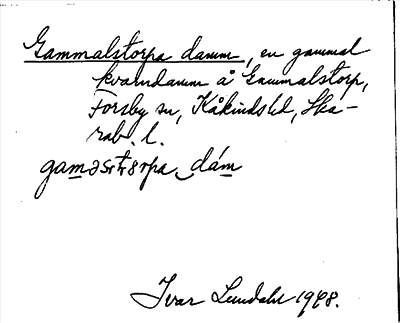 Gammalstorpa damm, en gammal
kvarndamm å Gammalstorp,
Forsby sn, Kåkinds hd, Ska-
rab. l.
Ivar Lundahl 1948.